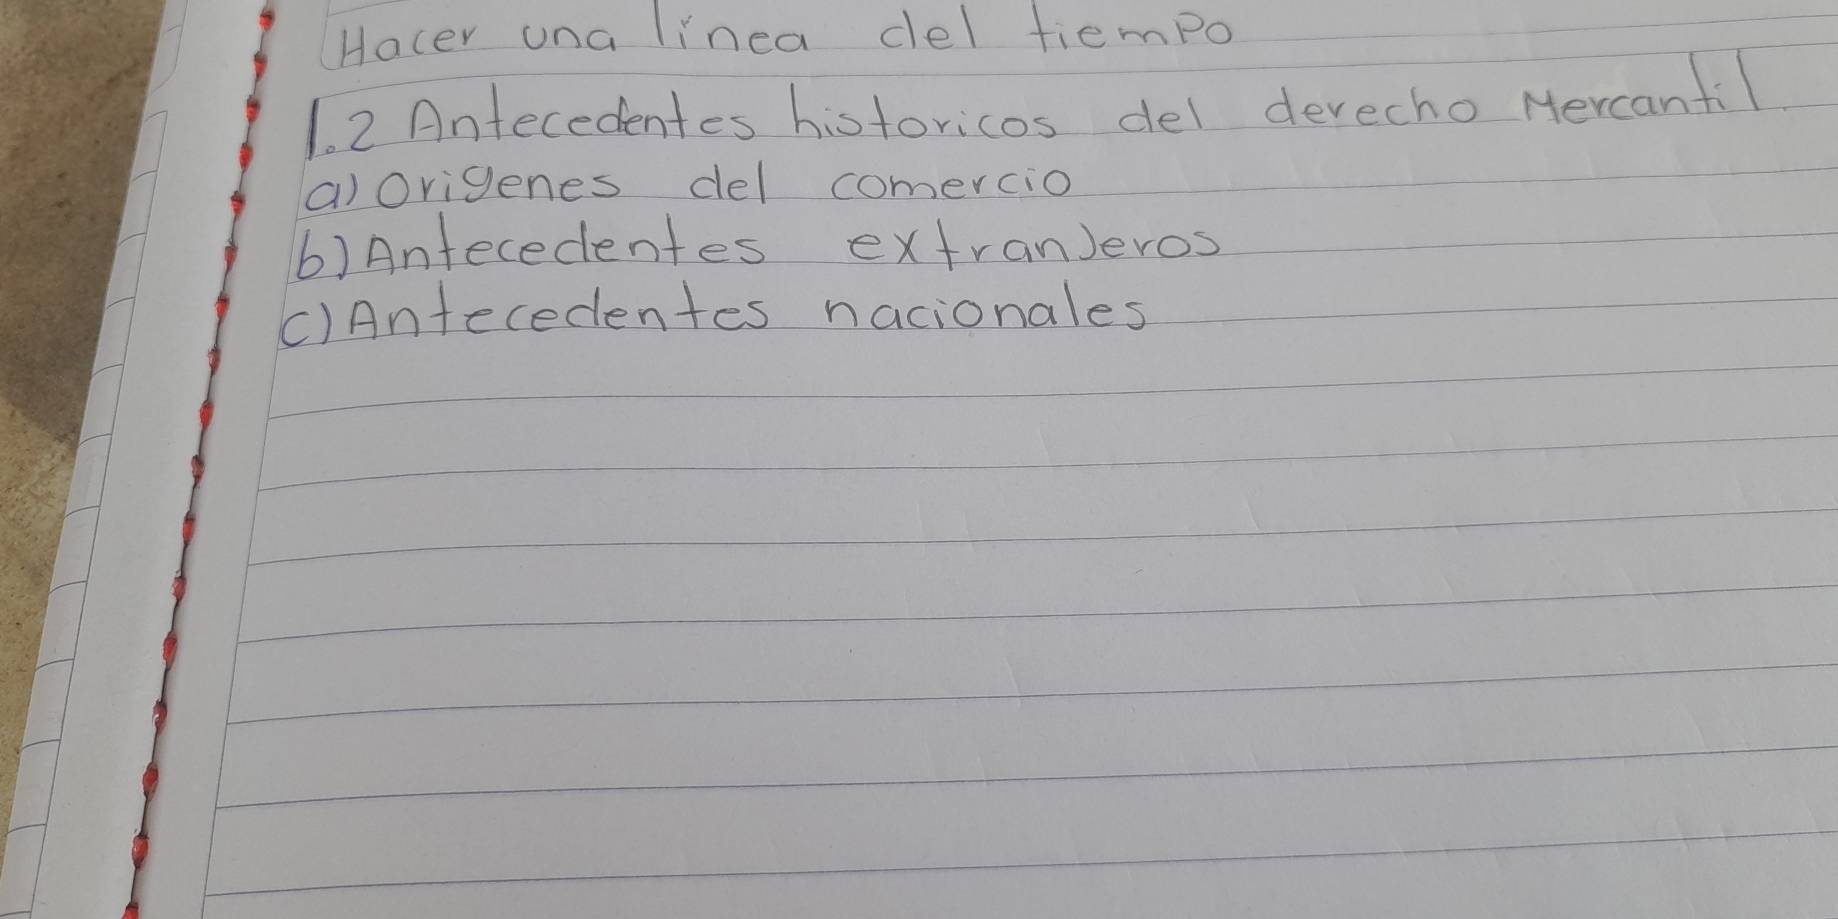 Hacer una línea del tiempo
1.2 Antecedentes historicos del derecho Mercantil
a) Origenes del comercio
b) Antecedentes extranjeros
c) Antecedentes nacionales